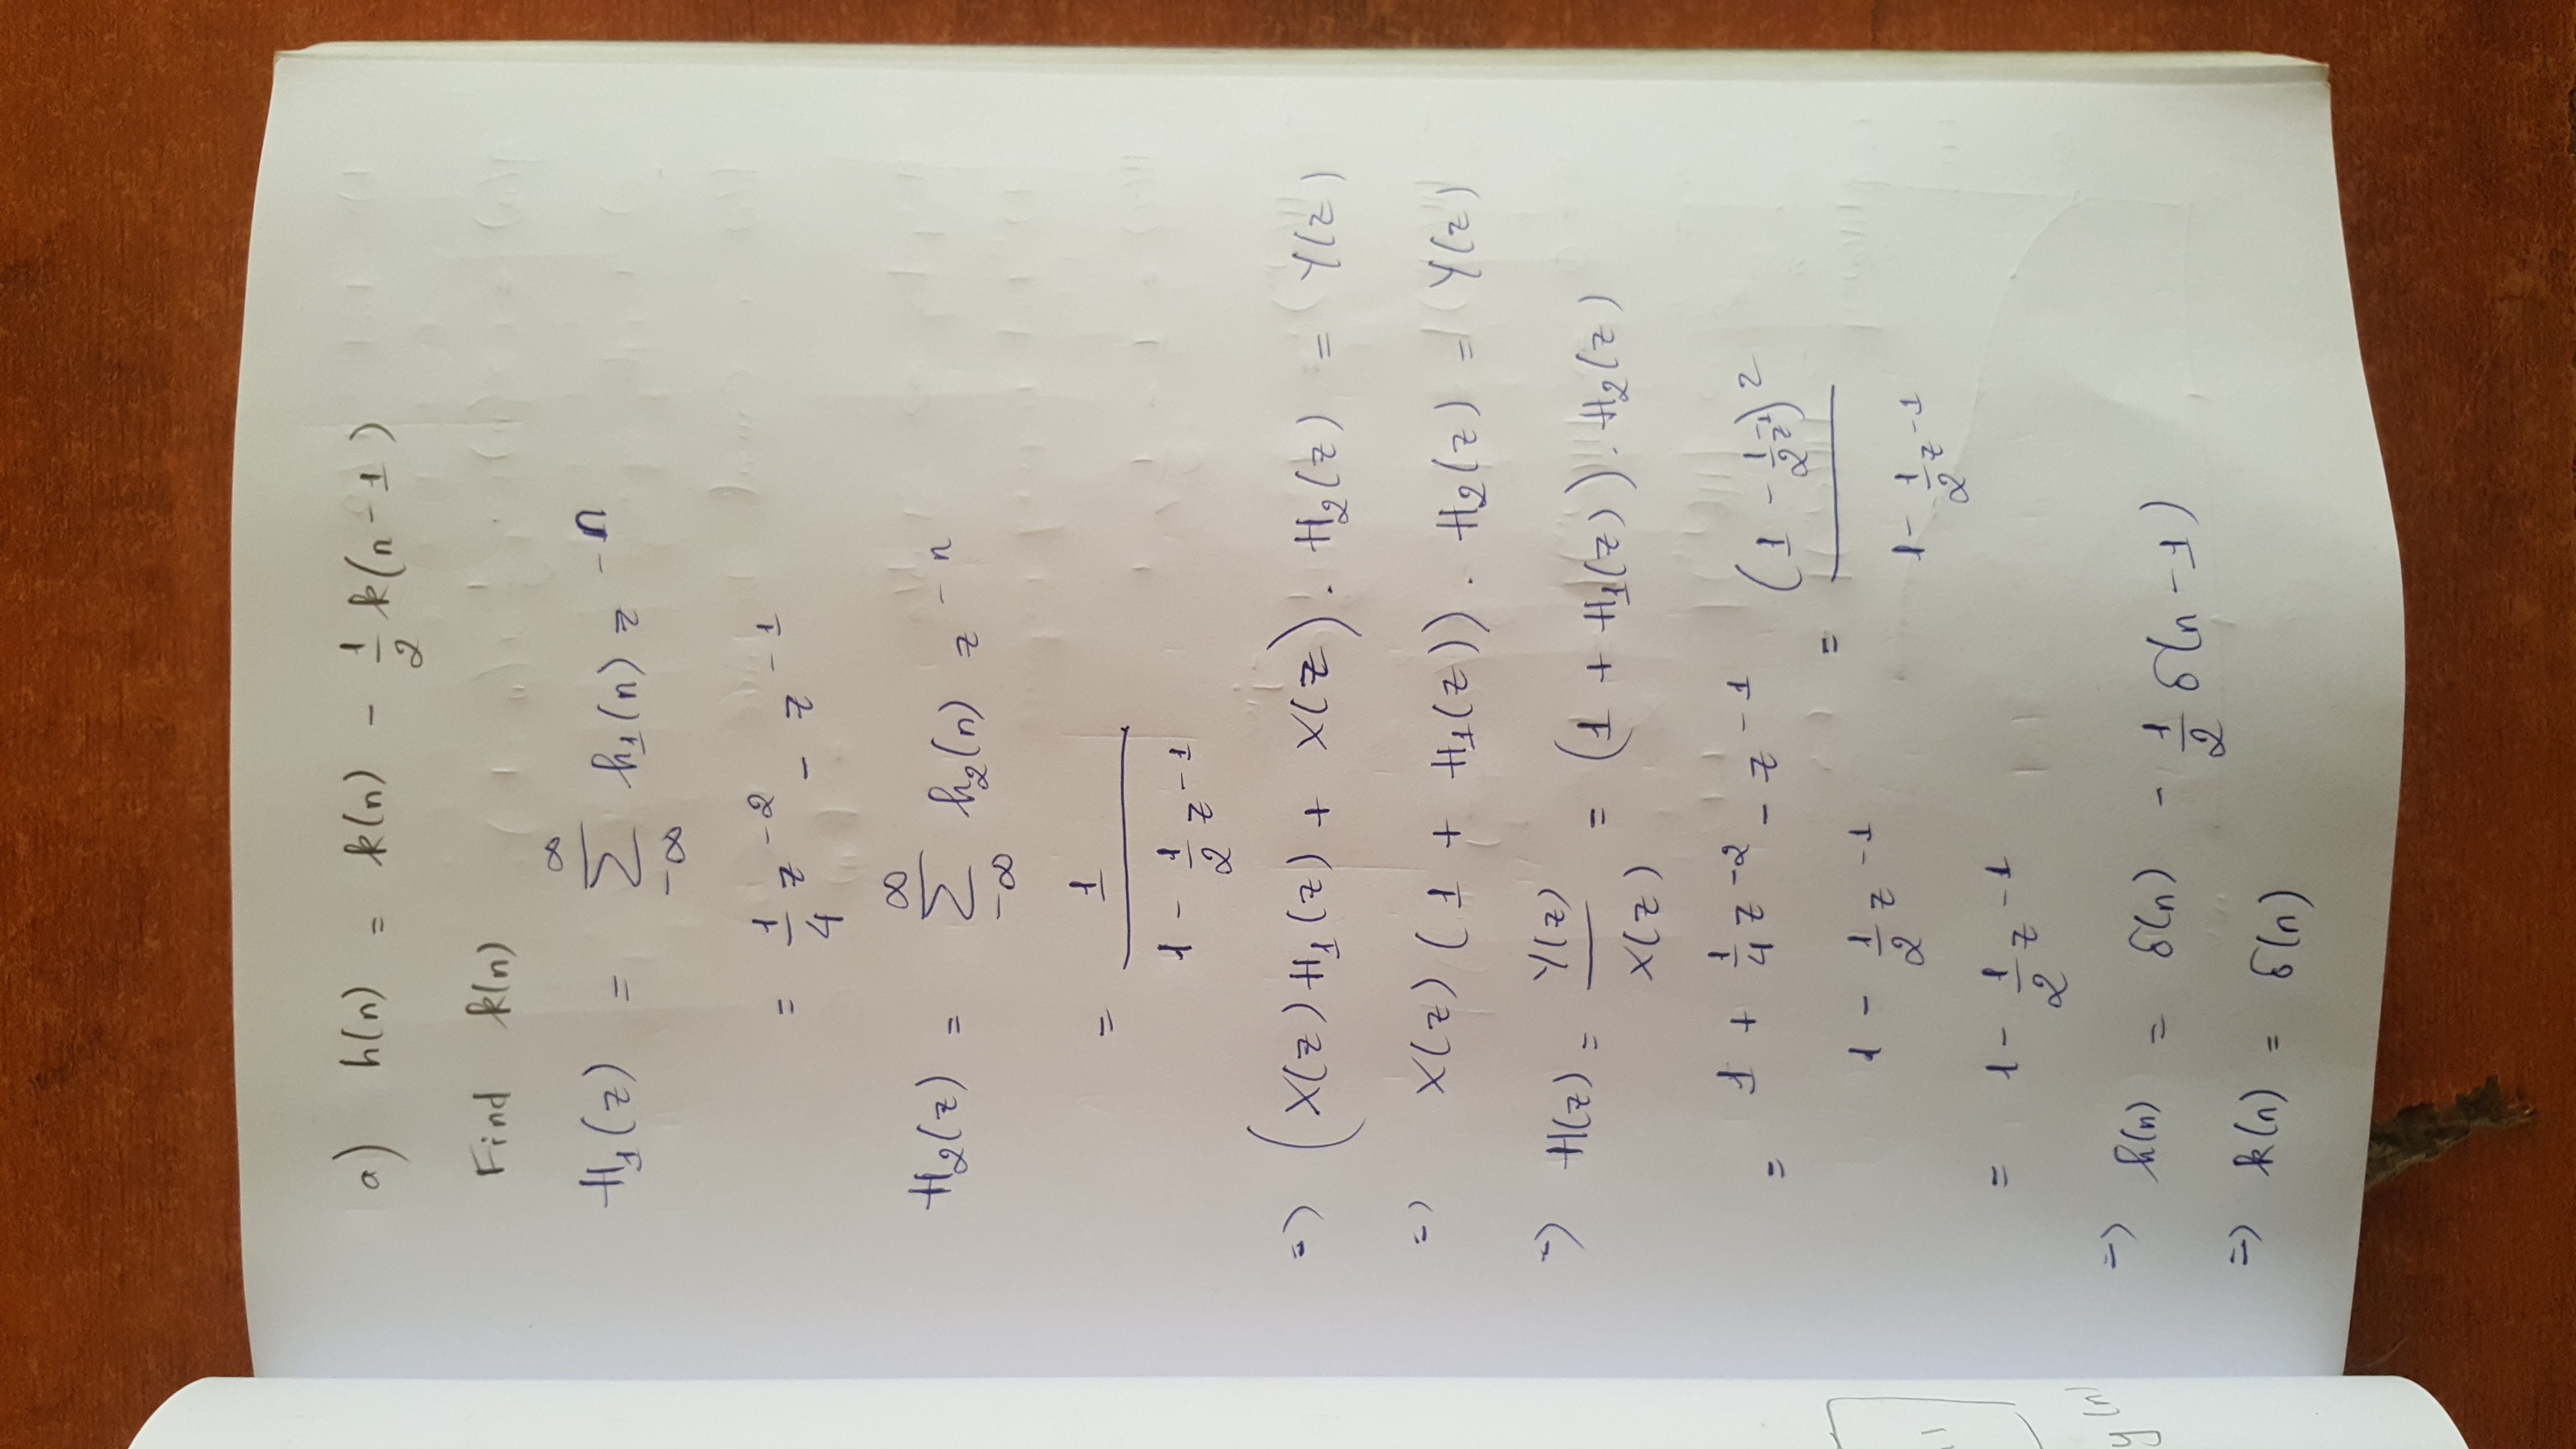 a) h(n) = k(n) - 1/2 k(n-1)
Find k(n)
H₁(z) = ∑_{-∞}^{∞} h₁(n) z^{-n}
= 1/4 z^{-2} - z^{-1}
H₂(z) = ∑_{-∞}^{∞} h₂(n) z^{-n}
= 1/(1 - 1/2 z^{-1})
=> (X(z) H₁(z) + X(z)) . H₂(z) = Y(z)
=> X(z) (1 + H₁(z)) . H₂(z) = Y(z)
=> H(z) = Y(z)/X(z) = (1 + H₁(z)) . H₂(z)
= (1 + 1/4 z^{-2} - z^{-1})/(1 - 1/2 z^{-1}) = (1 - 1/2 z^{-1})^2/(1 - 1/2 z^{-1})
= 1 - 1/2 z^{-1}
=> h(n) = δ(n) - 1/2 δ(n-1)
=> k(n) = δ(n)
y(n)